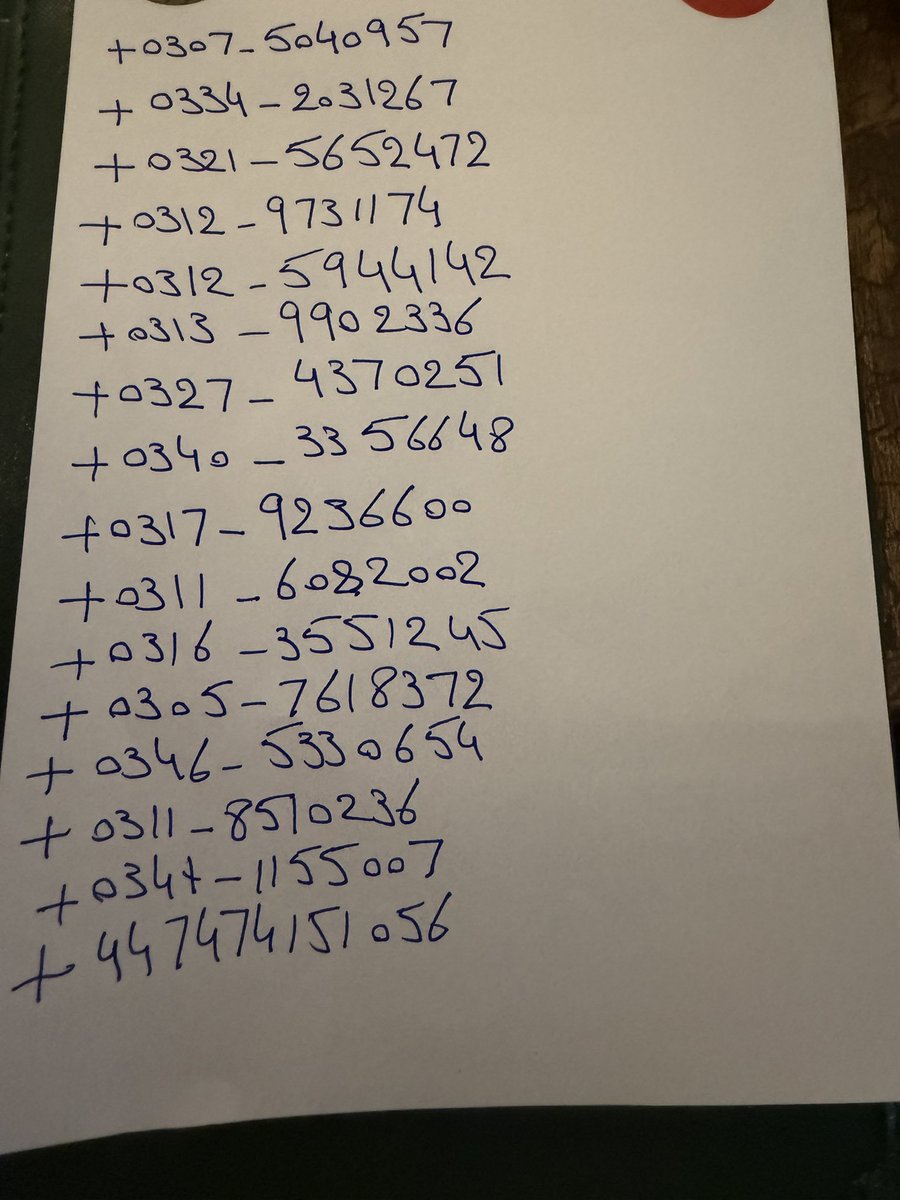 +0307-5040957
+0334-2031267
+0321-5652472
+0312-9731174
+0312-5944142
+0313-9902336
+0327-4370251
+0340-3356648
+0317-9236600
+0311-6082002
+0316-3551245
+0305-7618372
+0346-5330654
+0311-8510236
+0347-1155007
+447474151056